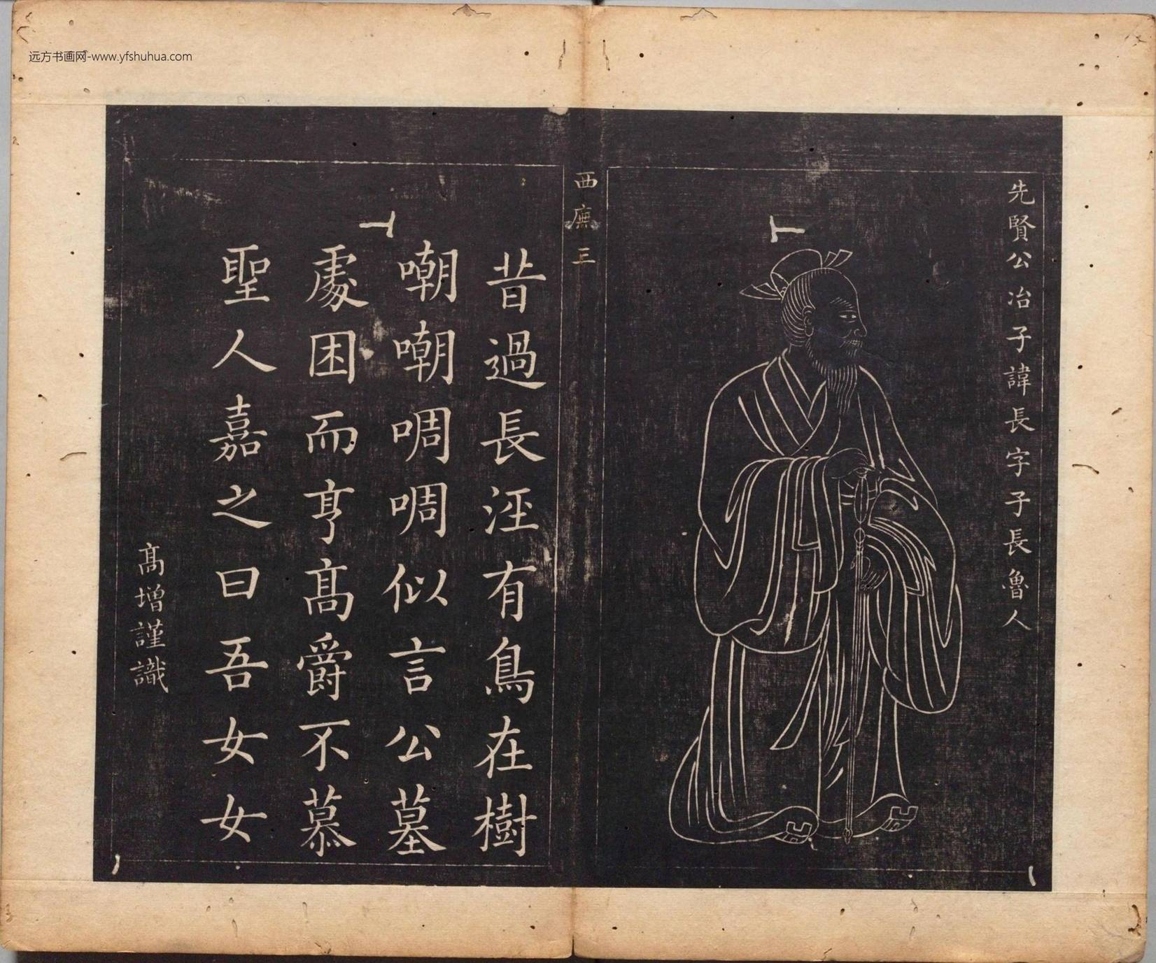 远方书画网-www.yfshuhua.com
先賢公冶子諱長字子長魯人
西廡三
昔過長涇有鳥在樹
嘲嘲啁啁似言公墓
處困而亨高爵不慕
聖人嘉之曰吾女女
高增謹識